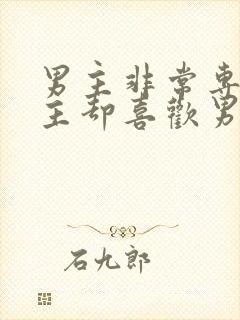 男主非常專
主却喜歡男
石九郎